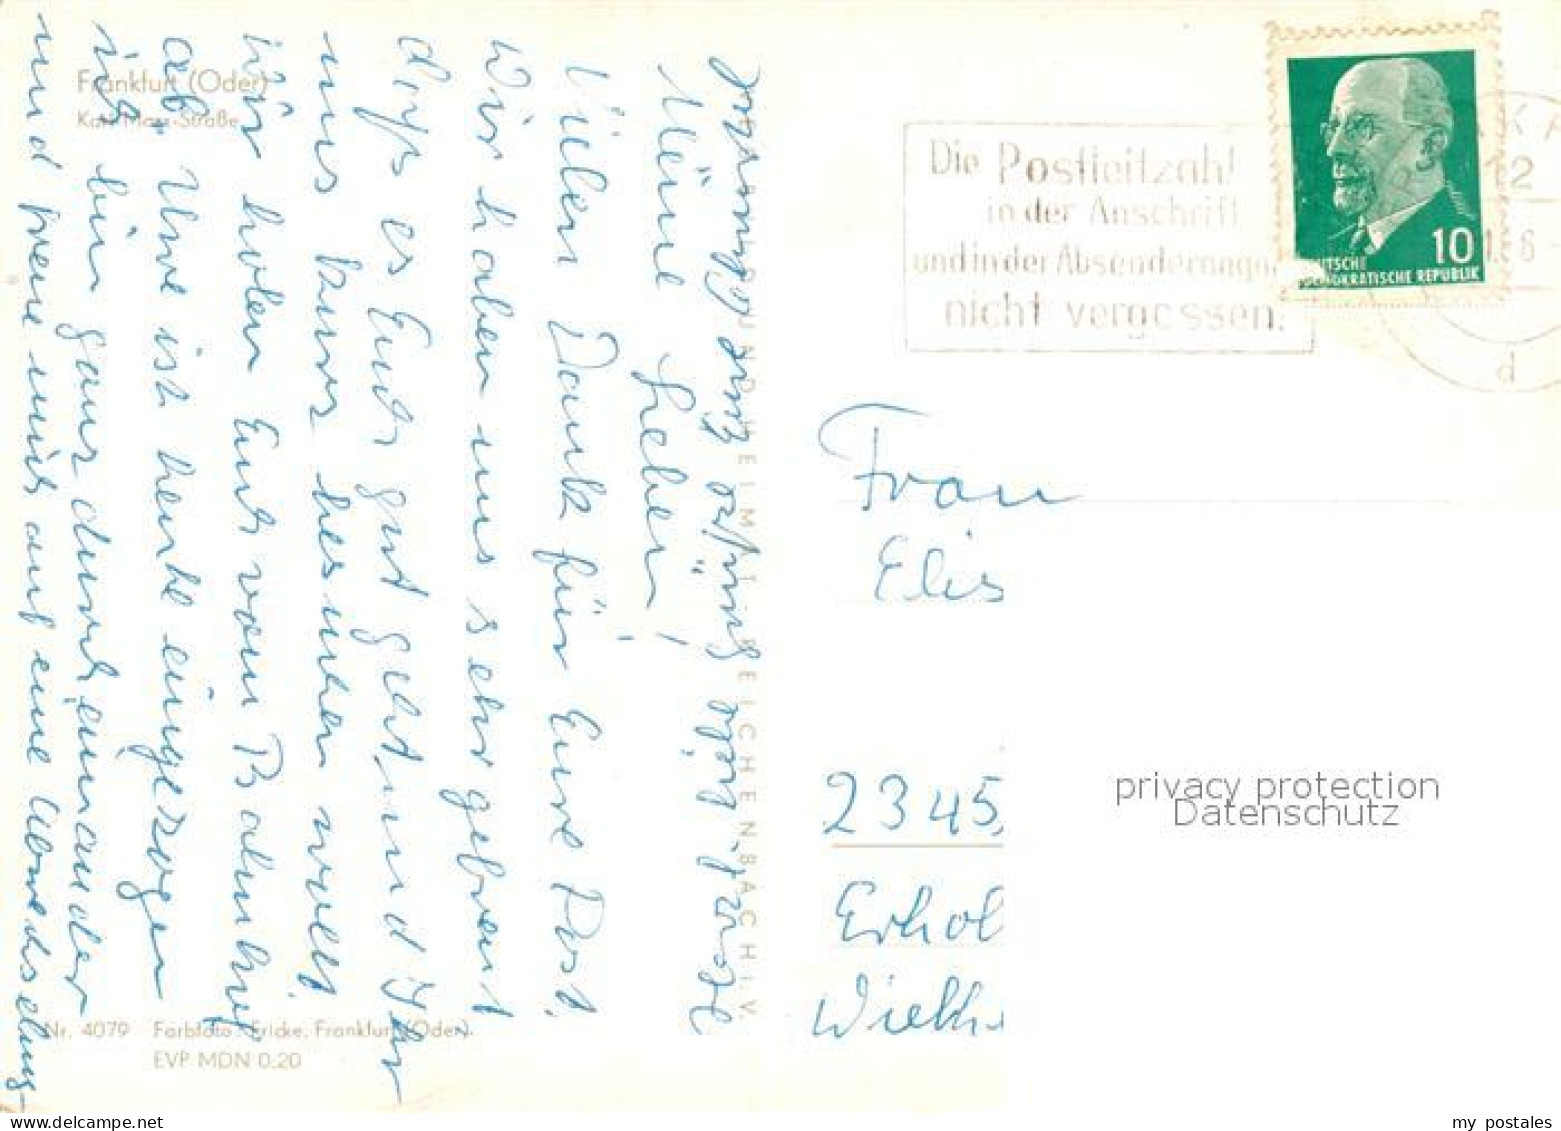 Frankfurt (Oder)
Karl-Marx-Straße
Meine Lieben!
Vielen Dank für Eure Post.
Wir haben uns sehr gefreut
daß es Euch gut geht und Ihr
uns kurz besuchen wollt.
Wir holen Euch vom Bahnhof
ab. Uwe ist heute eingezogen
ich bin ganz durcheinander
und freue mich auf eine Abwechslung-
Nr. 4079 Farbfoto: Fricke, Frankfurt (Oder)
EVP MDN 0.20
BILD UND HEIMAT REICHENBACH I. V.
Die Postleitzahl
in der Anschrift
und in der Absenderangabe
nicht vergessen.
12
d
10
DEUTSCHE
DEMOKRATISCHE REPUBLIK
Frau
Elis
2345
Erhol
privacy protection
Datenschutz
my postales